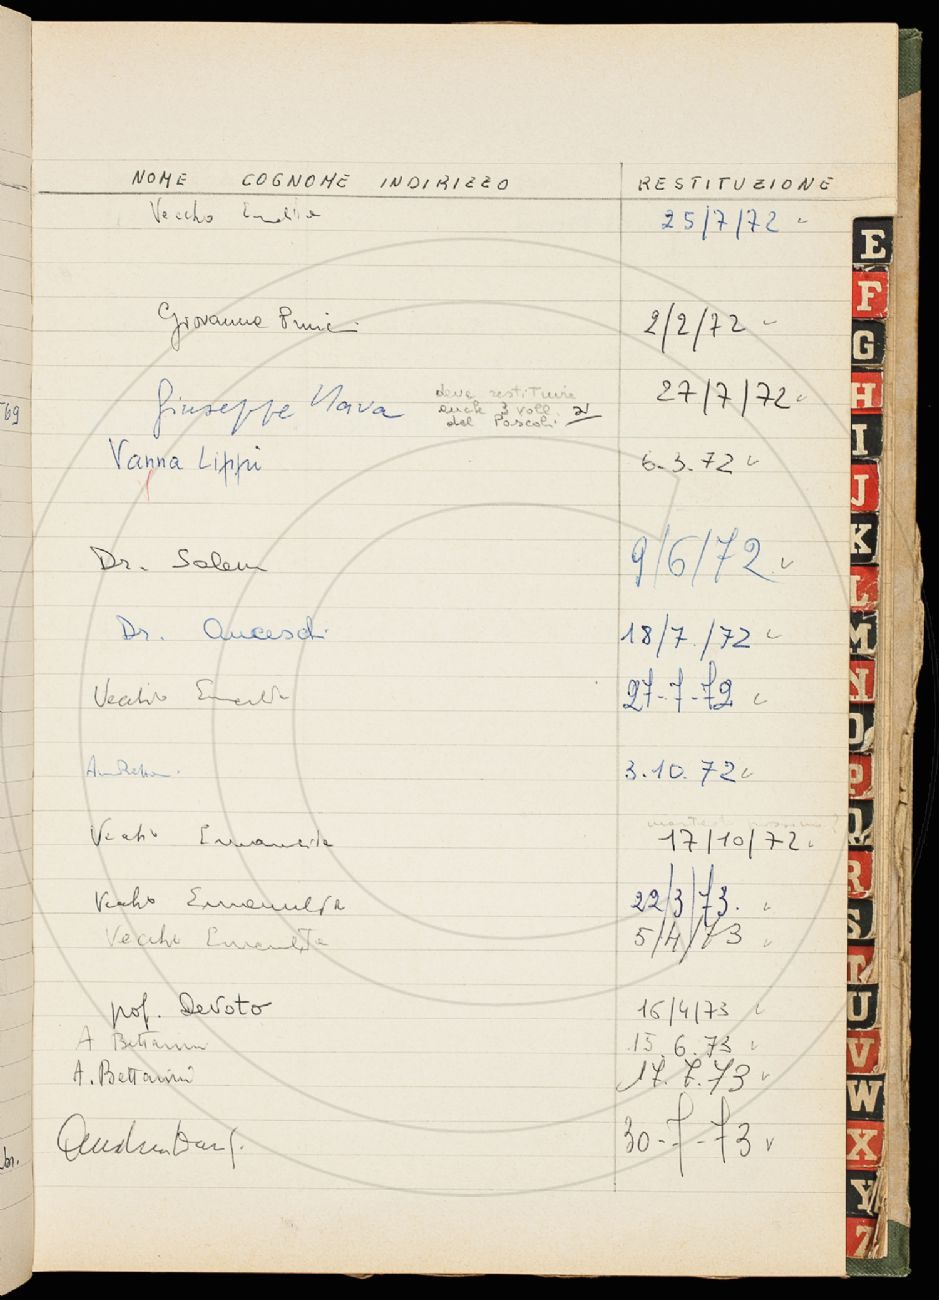 NOME COGNOME INDIRIZZO RESTITUZIONE
Vecchio 25/7/72
Giovanna 2/2/72
Giuseppe Nava deve restituire 27/7/72
anche 3 voll.
del Pascoli sì
69
Vanna Lippi 6.3.72
Dr. Salem 9/6/72
Dr. Anceschi 18/7/72
Vecchio 27-7-72
3.10.72
Vecchio Emanuela 17/10/72
Vecchio Emanuela 22/3/73.
Vecchio Emanuela 5/4/73
prof. Devoto 16/4/73
A Bettarini 15.6.73
A. Bettarini 17.7.73
30-7-73
E
F
G
H
I
J
K
L
M
N
O
P
Q
R
S
T
U
V
W
X
Y
Z